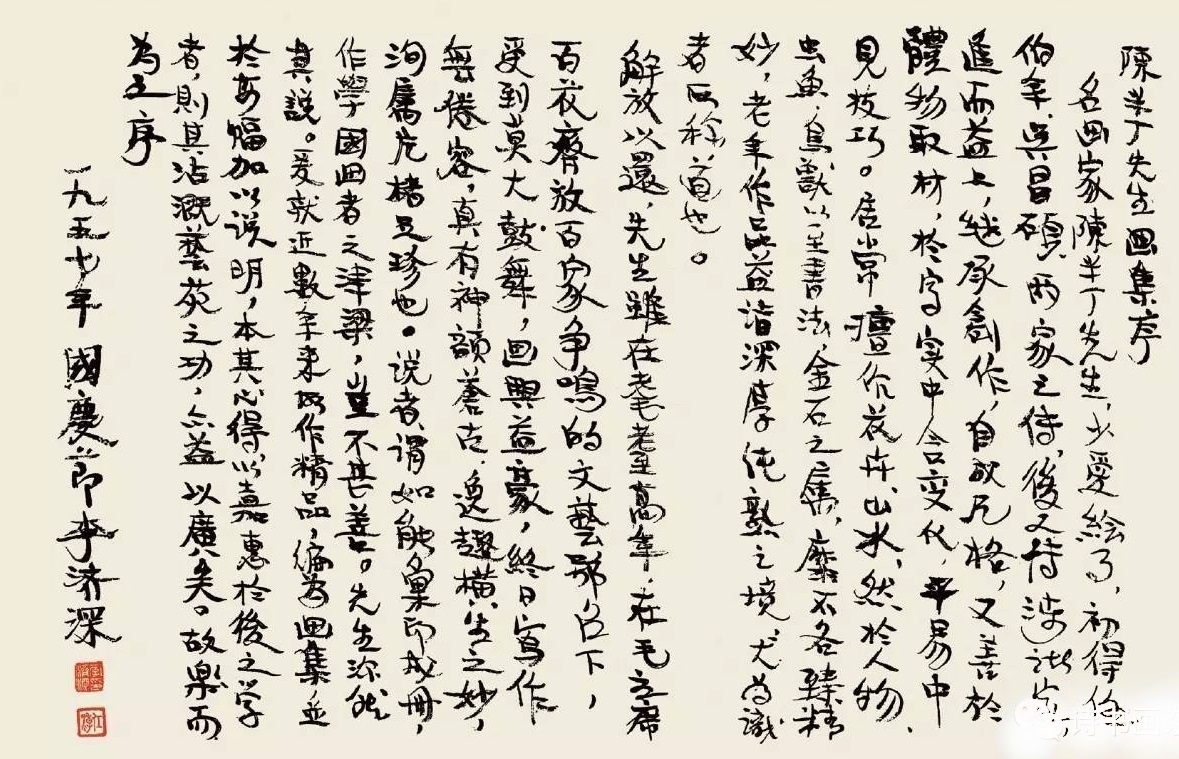 陳半丁先生画集序
名画家陳半丁先生，少受绘事，初得任
伯年、吳昌碩兩家之傳，後又博涉諸家，
進而益上，继承創作，自成凡格，又善於
體物取材，於写实中含变化，平易中
見技巧。居常擅作花卉、山水，然於人物、
虫魚、鳥獸以至書法，金石之属，靡不各臻精
妙，老年作品益詣深厚纯熟之境，尤为识
者所称道也。
解放以還，先生雖在耄耋高年，在毛主席
百花齊放百家争鳴的文藝號召下，
受到莫大鼓舞，画興益豪，終日寫作
無倦容，真有神韻蒼古、逸趣横生之妙，
洵属片楮足珍也。说者謂如能彙印成册，
作學國画者之津梁，豈不甚善。先生深然
其說。爰就近數年来所作精品，编为画集，並
於每幅加以说明，本其心得，以嘉惠於後之学
者，則其沾溉藝苑之功，亦益以廣矣。故樂而
为之序
一九五七年國慶節李济深